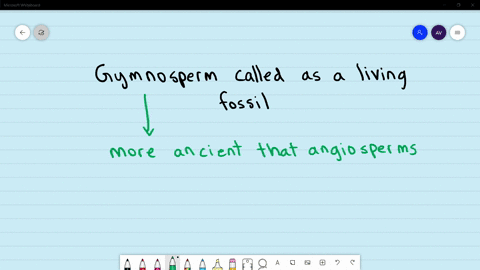 Microsoft Whiteboard
AV
Gymnosperm called as a living
fossil
more ancient that angiosperms
A